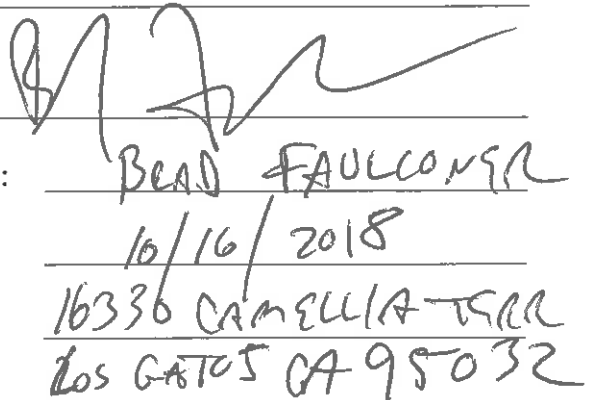 : BRAD FAULCONER
10/16/2018
16330 CAMELLIA TERR
LOS GATOS CA 95032